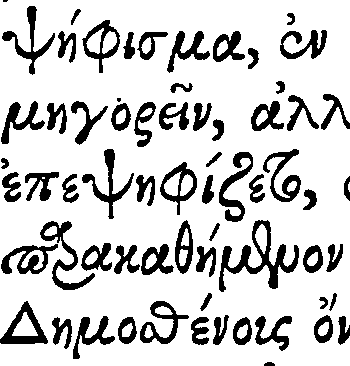 ψήφισμα, ἐν
μηγορεῖν, ἀλλ
ἐπεψηφίζετο,
παρακαθήμενον
Δημοσθένοις ὄν